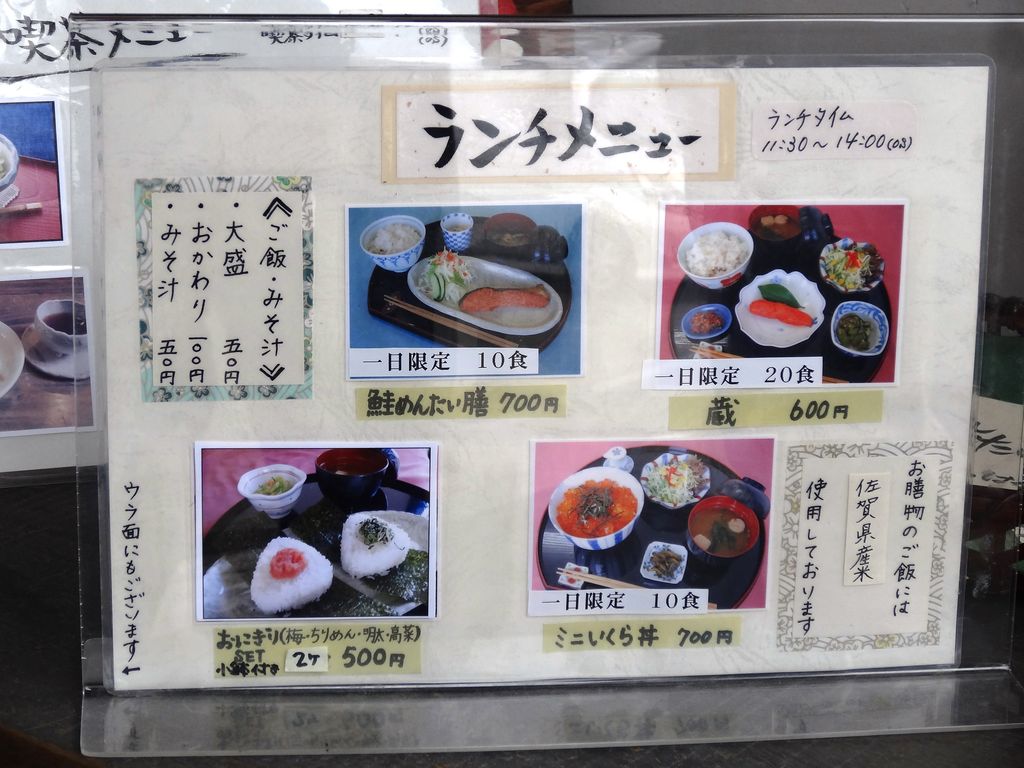 喫茶メニュー
ランチメニュー
ランチタイム
11:30～14:00(OS)
≪ご飯・みそ汁≫
・大盛 五〇円
・おかわり 一〇〇円
・みそ汁 五〇円
一日限定 10食
鮭めんたい膳 700円
一日限定 20食
蔵 600円
おにぎり(梅・ちりめん・明太・高菜)
SET
小鉢付き 2ケ 500円
一日限定 10食
ミニいくら丼 700円
お膳物のご飯には
佐賀県産米
使用しております
ウラ面にもございます←